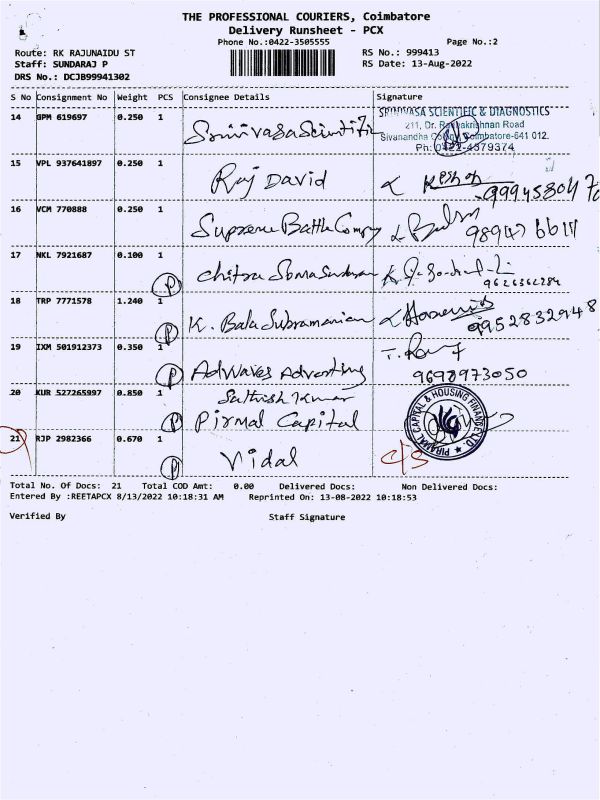 THE PROFESSIONAL COURIERS, Coimbatore
Delivery Runsheet - PCX
Phone No.:0422-3505555 Page No.:2
Route: RK RAJUNAIDU ST RS No.: 999413
Staff: SUNDARAJ P RS Date: 13-Aug-2022
DRS No.: DCJB99941302
S No Consignment No Weight PCS Consignee Details Signature
14 GPM 619697 0.250 1 Srinivasa Scientific SRINIVASA SCIENTIFIC & DIAGNOSTICS
211, Dr. Radhakrishnan Road
Sivanandha Colony, Coimbatore-641 012.
Ph: 0422-4379374
15 VPL 937641897 0.250 1 Raj David
16 VCM 770888 0.250 1 Supreme
17 NKL 7921687 0.100 1 P Chitra Somasundaram
9626362284
18 TRP 7771578 1.240 1 P K. Bala Subramanian
9952832948
19 IXM 501912373 0.350 1 P Adwaves Adverting
9698973050
20 KUR 527265997 0.850 1 P Sathish Kumar
Pirmal Capital PIRAMAL CAPITAL & HOUSING FINANCE LTD
21 RJP 2982366 0.670 1 P Vidal
Total No. Of Docs: 21 Total COD Amt: 0.00 Delivered Docs: Non Delivered Docs:
Entered By :REETAPCX 8/13/2022 10:18:31 AM Reprinted On: 13-08-2022 10:18:53
Verified By Staff Signature